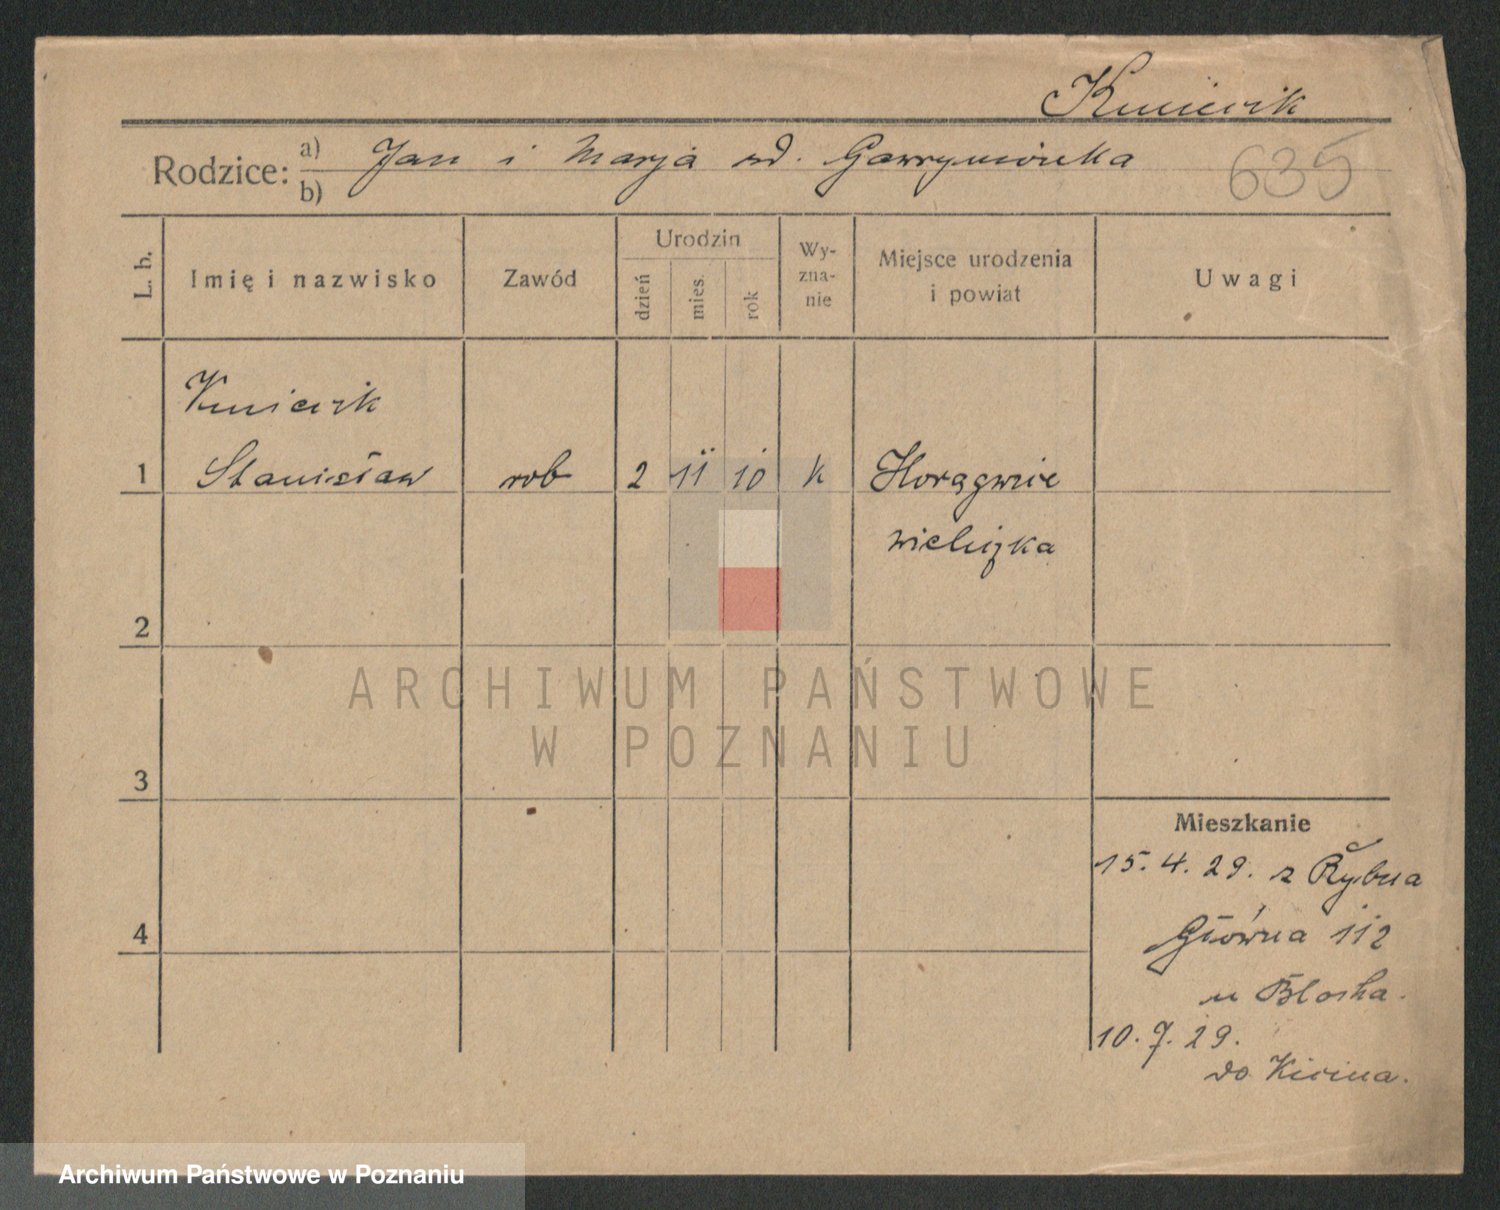 Kmiecik
Rodzice:
a) Jan i Marja zd.
b)
635
L. b.
Imię i nazwisko
Zawód
Urodzin
dzień
mies.
rok
Wy-
zna-
nie
Miejsce urodzenia
i powiat
Uwagi
Kmiecik
1 Stanisław rob 2 11 10 k
2
3
4
Mieszkanie
15. 4. 29. z Rybna
Główna 112
u
10. 7. 29.
do Kicina.
ARCHIWUM PAŃSTWOWE
W POZNANIU
Archiwum Państwowe w Poznaniu